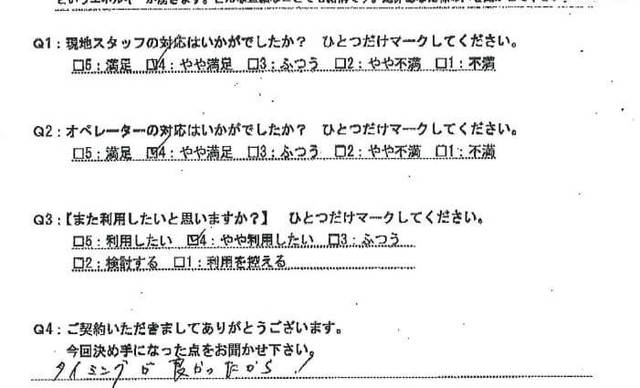 Q1：現地スタッフの対応はいかがでしたか？　ひとつだけマークしてください。
□5：満足　☑4：やや満足　□3：ふつう　□2：やや不満　□1：不満
Q2：オペレーターの対応はいかがでしたか？　ひとつだけマークしてください。
□5：満足　☑4：やや満足　□3：ふつう　□2：やや不満　□1：不満
Q3：【また利用したいと思いますか？】　ひとつだけマークしてください。
□5：利用したい　☑4：やや利用したい　□3：ふつう
□2：検討する　□1：利用を控える
Q4：ご契約いただきましてありがとうございます。
今回決め手になった点をお聞かせ下さい。
タイミングが良かったから！